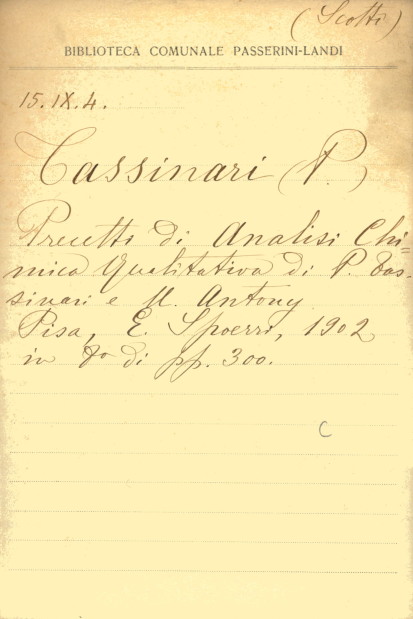 (Scotti)
BIBLIOTECA COMUNALE PASSERINI-LANDI
15.IX.4.
Tassinari (P.)
Precetti di Analisi Chi=
mica Qualitativa di P. Tas-
sinari e U. Antony
Pisa, E. Spoerri, 1902
in 8º di pp. 300.
C